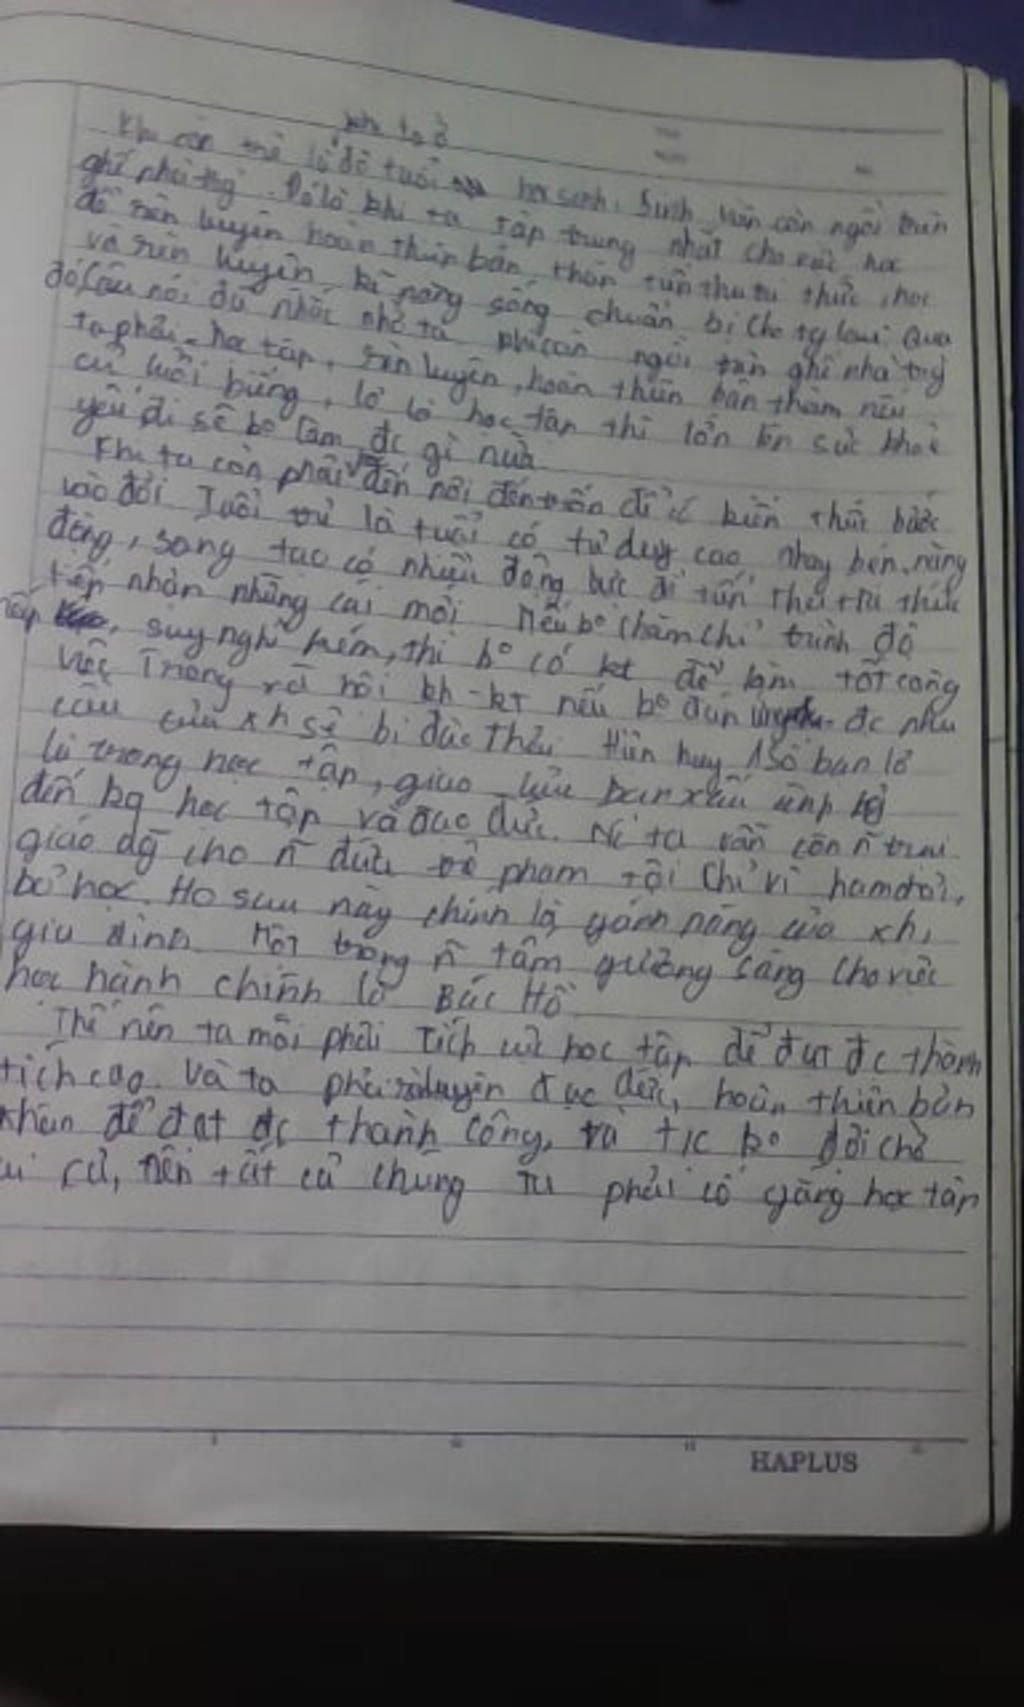 khi ta ở
Khi còn trẻ là độ tuổi học sinh, sinh viên còn ngồi trên
ghế nhà trg. Đó là khi ta tập trung nhất cho việc học
để rèn luyện hoàn thiện bản thân tiếp thu tri thức, học
và rèn luyện kĩ năng sống chuẩn bị cho tg lai. Qua
đó câu nói đã nhắc nhở ta phải còn ngồi trên ghế nhà trg
ta phải học tập, rèn luyện, hoàn thiện bản thân nếu
cứ lười biếng, lơ là học tập thì lớn lên sức khoẻ
yếu đi sẽ ko làm đc gì nữa
Khi ta còn phải đến nơi đến trốn để kiến thức bước
vào đời. Tuổi trẻ là tuổi có tư duy cao nhạy bén, năng
động, sáng tạo có nhiều động lực để tiếp thu tri thức
tiếp nhận những cái mới. Nếu ko chăm chỉ trình độ
thấp, suy nghĩ kém, thì ko có kt để làm tốt công
việc. Trong xã hội kh-kt nếu ko đáp ứng đc nhu
cầu của xh sẽ bị đào thải. Hiện nay 1 số bạn lơ
là trong học tập, giao lưu bạn xấu
đến kq học tập và đạo đức. Nc ta vẫn còn n̄ trại
giáo dg cho n̄ đứa trẻ phạm tội chỉ vì ham chơi,
bỏ học. Họ sau này chính là gánh nặng của xh,
gia đình. Một trong n̄ tấm gương sáng cho việc
học hành chính là Bác Hồ
Thế nên ta mỗi phải tích cực học tập để đạt đc thành
tích cao. Và ta phải rèn luyện đạo đức, hoàn thiện bản
thân để đạt đc thành công, và ko đợi chờ
ai cả, nên tất cả chúng ta phải cố gắng học tập
HAPLUS